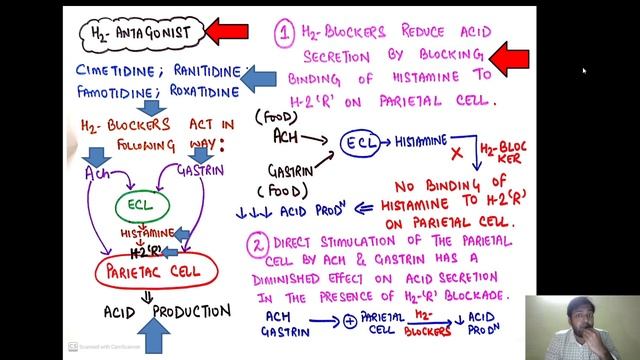 H₂-ANTAGONIST
CIMETIDINE; RANITIDINE;
FAMOTIDINE; ROXATIDINE
H₂-BLOCKERS ACT IN
FOLLOWING WAY:
Ach
GASTRIN
ECL
HISTAMINE
H-2'R'
PARIETAC CELL
ACID PRODUCTION
1 H₂-BLOCKERS REDUCE ACID
SECRETION BY BLOCKING
BINDING OF HISTAMINE TO
H-2'R' ON PARIETAL CELL.
(FOOD)
ACH
ECL → HISTAMINE
GASTRIN
(FOOD)
X
H₂-BLOC
KER
NO BINDING OF
HISTAMINE TO H-2'R'
ON PARIETAL CELL.
↓↓↓ ACID PRODᴺ
2 DIRECT STIMULATION OF THE PARIETAL
CELL BY ACH & GASTRIN HAS A
DIMINISHED EFFECT ON ACID SECRETION
IN THE PRESENCE OF H₂-'R' BLOCKAGE.
ACH
GASTRIN
+ PARIETAL
CELL
H₂-
BLOCKERS
↓ ACID
PRODᴺ
CS Scanned with CamScanner